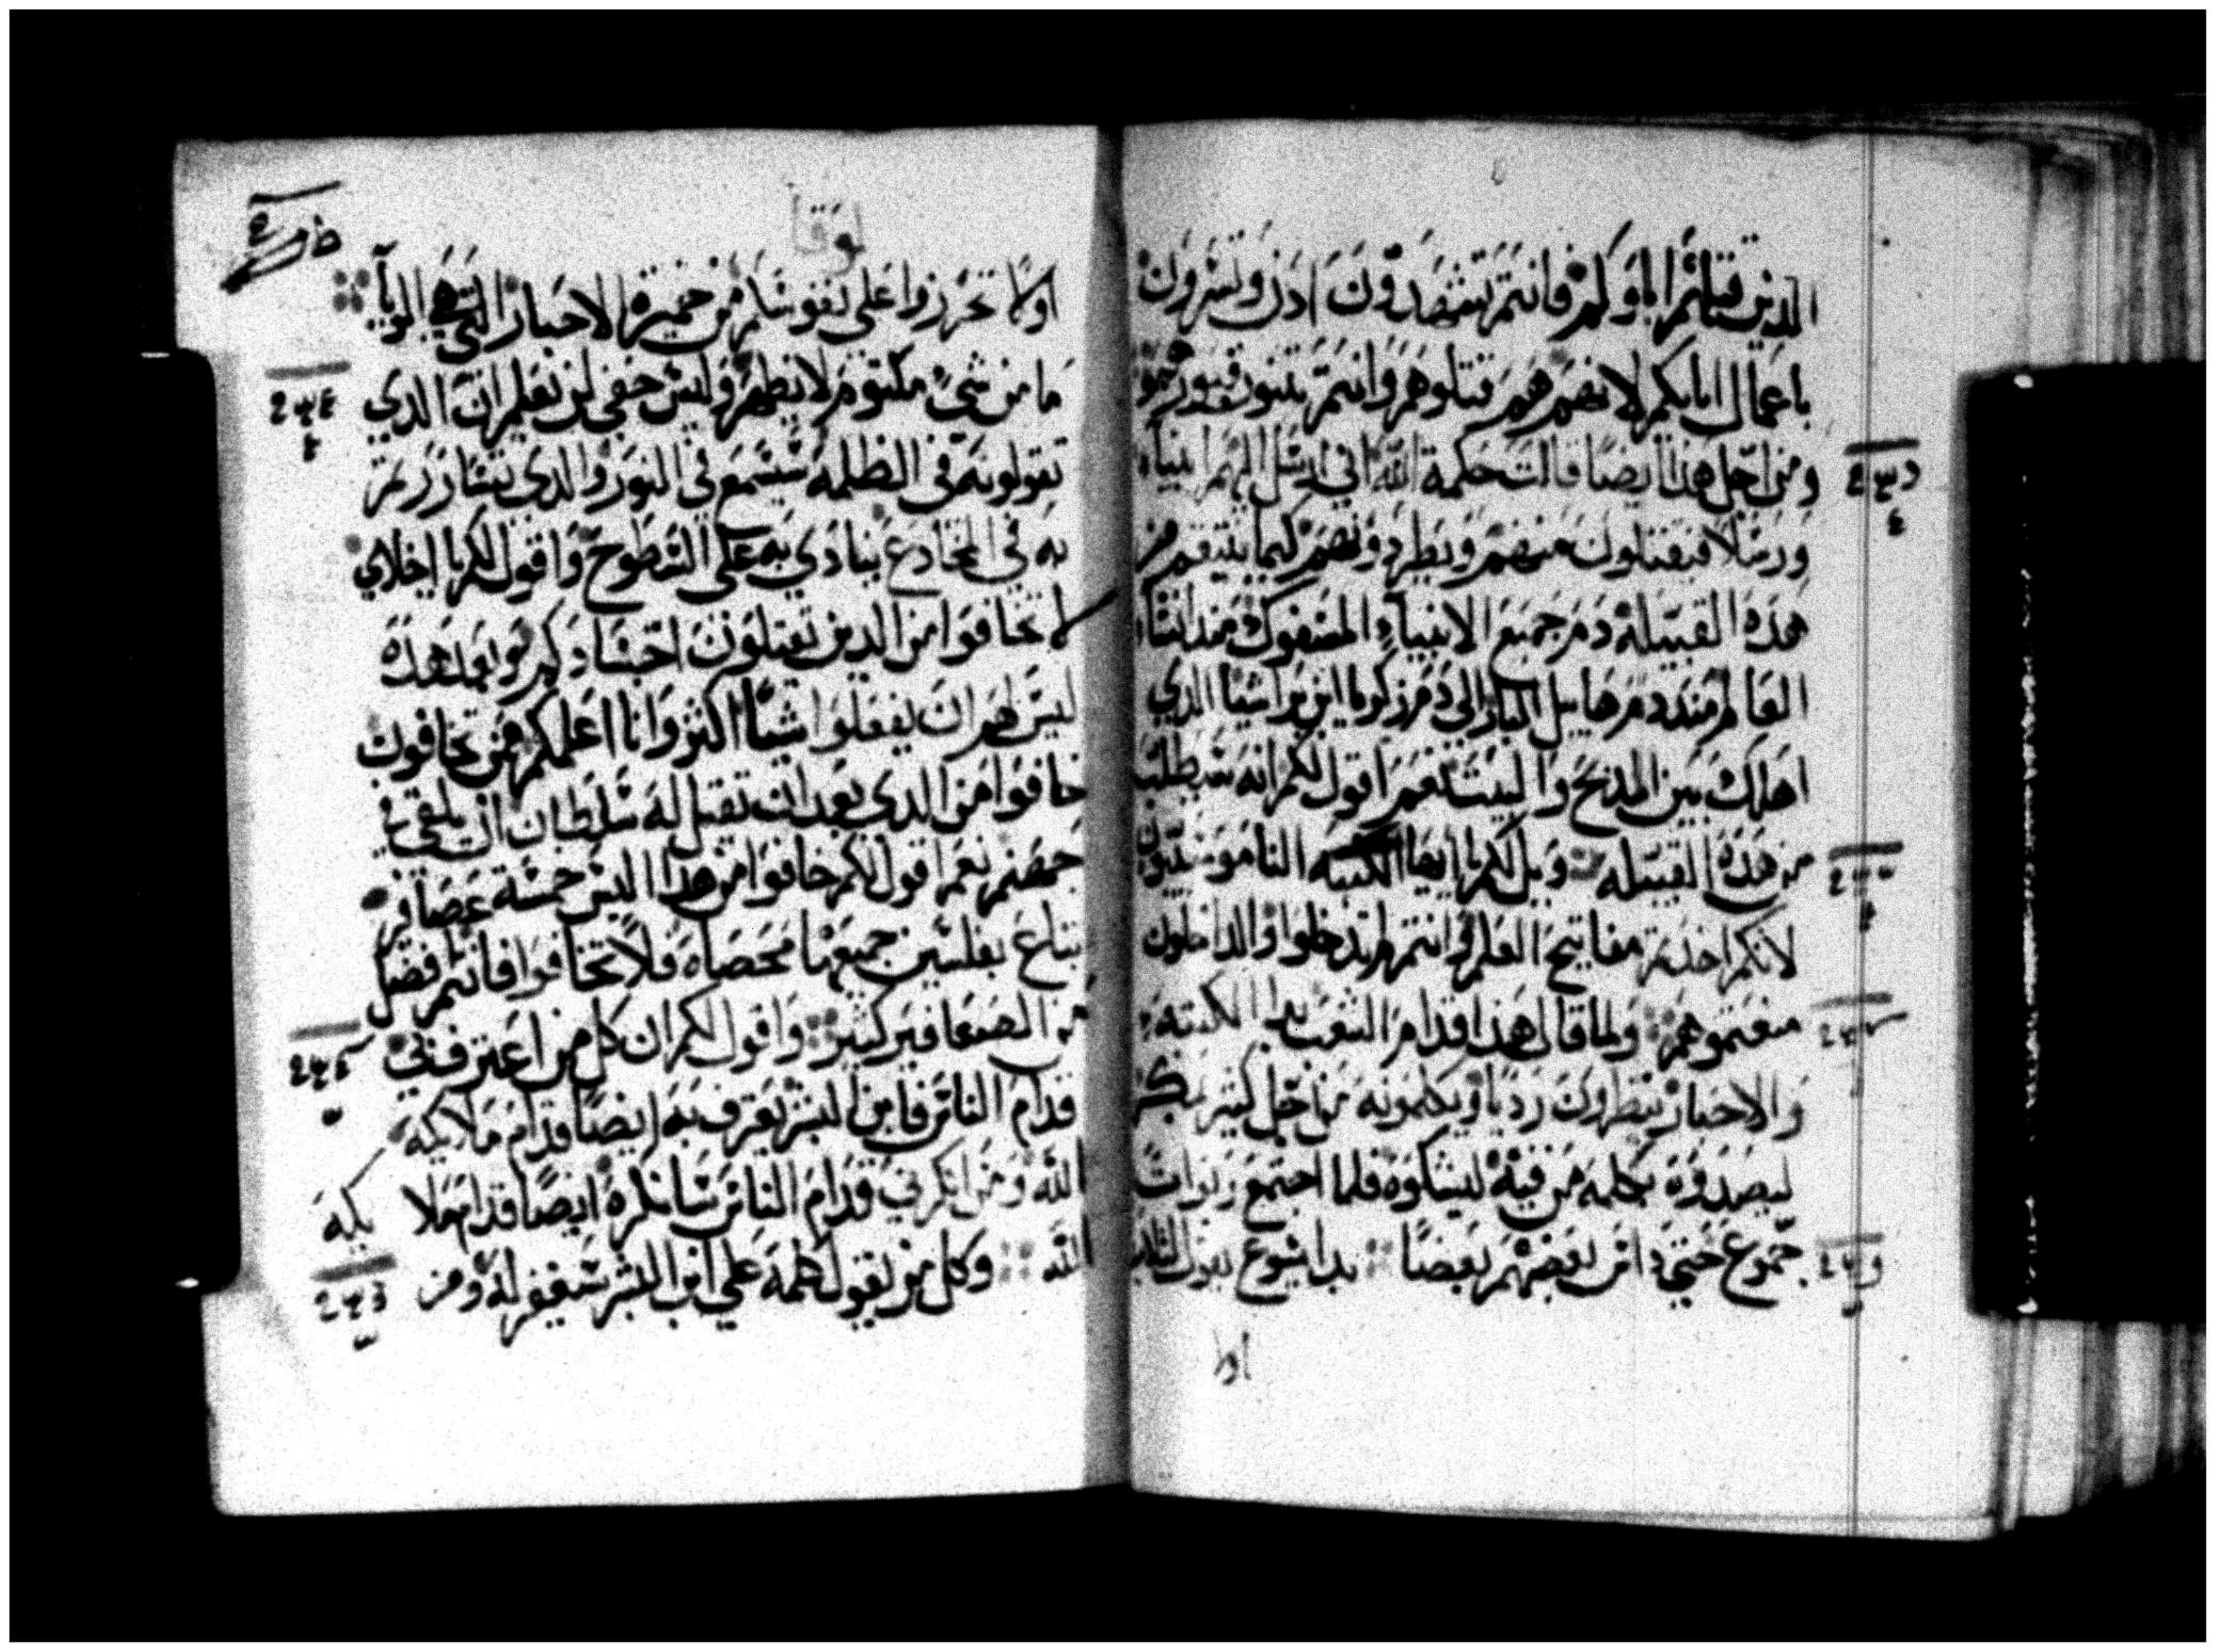 الدين قتلهم اباوكم فانتم تشهدون ادن وتسرون
باعمال ابايكم لانهم هم قتلوهم وانتم تبنون قبورهم
ومن اجل هذا ايضا قالت حكمة الله اني ارسل اليهم انبياء
ورسلا فيقتلون منهم ويطردونهم كيما ينتقم من
هذه القبيلة دم جميع الانبياء المسفوك مند انشاء
العالم مند دم هابيل البار الى دم زكريا ابن براشيا الدي
اهلك بين المدبح والبيت نعم اقول لكم انه سيطلب
من هده القبيله ويل لكم ايها الكتبه الناموسيون
لانكم اخدتم مفاتيح العلم وانتم لم تدخلوا والداخلون
منعتموهم ولما قال هدا قدام الشعب بدا الكتبة
والاحبار ينظرون رديا ويكلمونه من اجل كثير بمكر
ليصدوه بكلمة من فيه ليشكوه فلما اجتمع ربوات
جموع حتي داس بعضهم بعضا بدا يشوع يقول لتلاميده
اولا
لوقا
اولا تحرزوا على نفوسكم من خميرة الاحبار التي هي الريا
ما من شيء مكتوم لا يظهر وليس خفي لن يعلم ان الدي
تقولونه في الظلمه سيسمع في النور والدي تساررتم
به في المخادع ينادي به على السطوح واقول لكم يا اخلاي
لا تخافوا من الدين يقتلون اجسادكم وبعد هذه
ليس لهم ان يفعلوا شيا اكثر وانا اعلمكم ممن تخافون
خافوا من الدي بعد ان يقتل له سلطان ان يلقي في
جهنم نعم اقول لكم خافوا من هدا اليس خمسة عصافير
تباع بفلسين جميعها محصاه فلا تخافوا فانتم افضل
من العصافير كثير واقول لكم ان كل من اعترف بي
قدام الناس فابن البشر يعترف به ايضا قدام ملايكه
الله ومن انكرني قدام الناس سانكره ايضا قدام ملايكه
الله وكل من يقول كلمة علي ابن البشر سيغفر له ومن